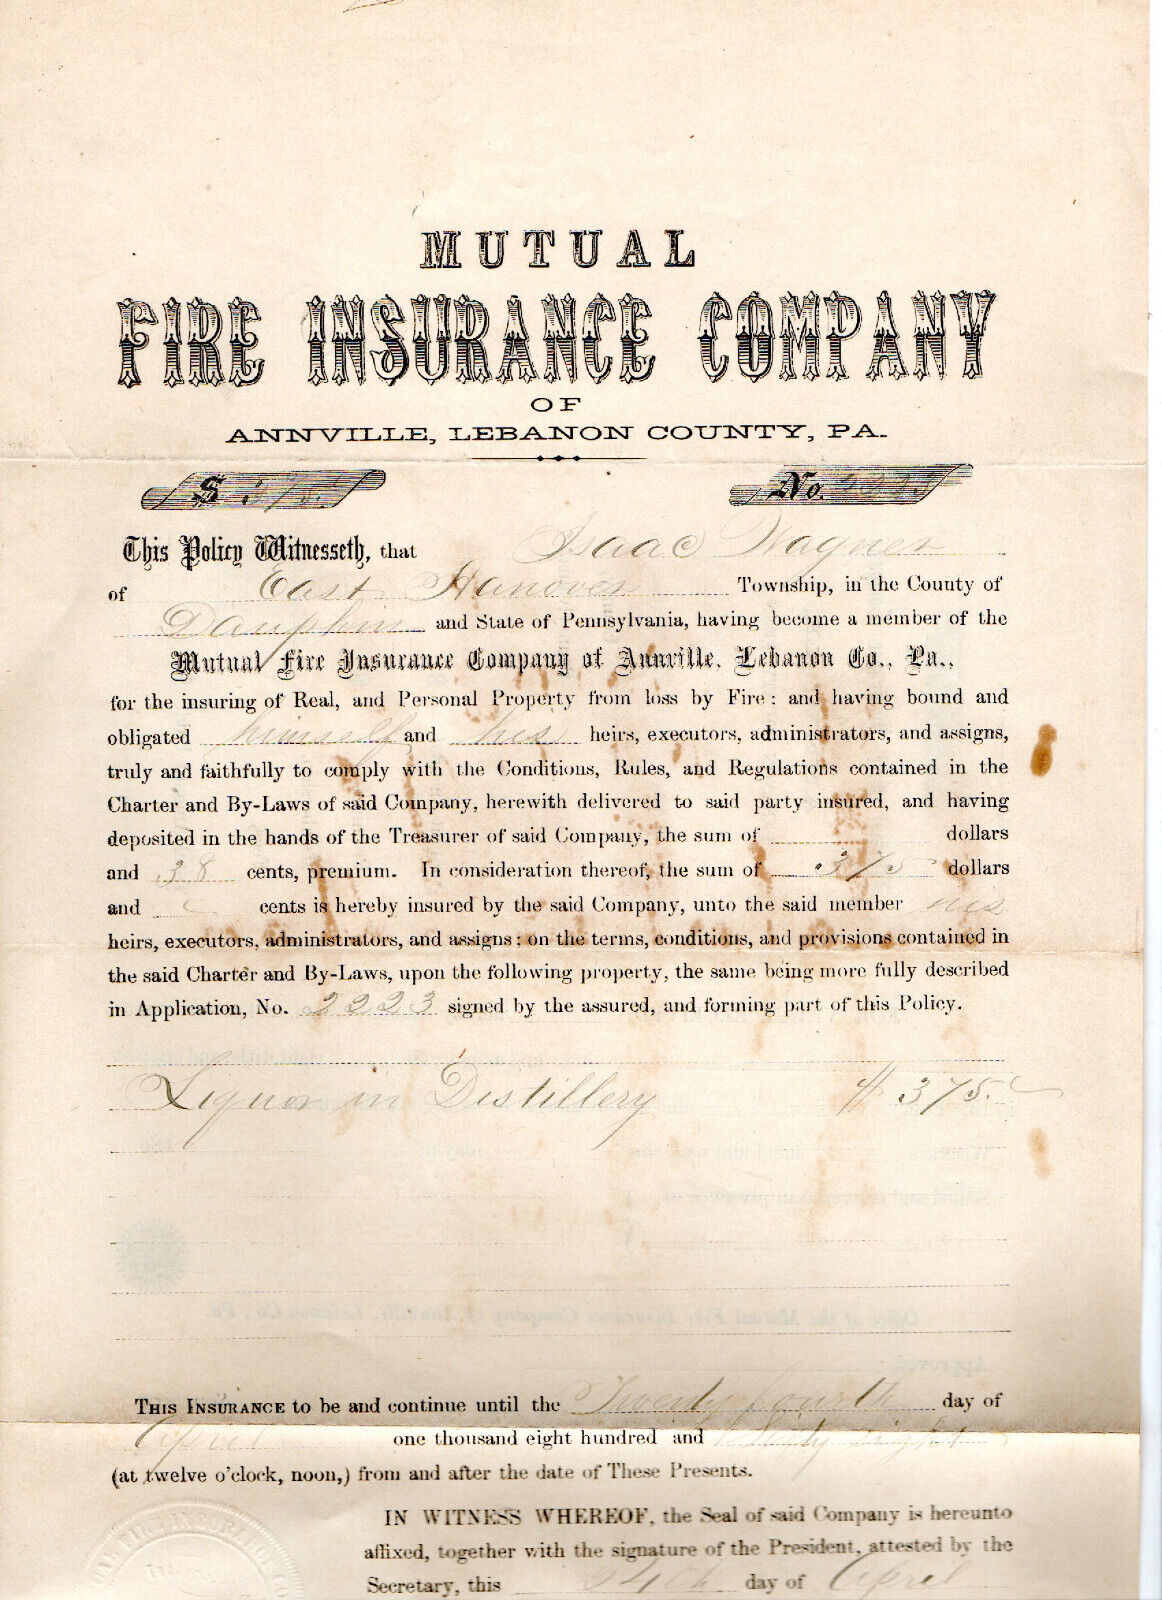 MUTUAL
FIRE INSURANCE COMPANY
OF
ANNVILLE, LEBANON COUNTY, PA.
$ 375. No. 2223
This Policy Witnesseth, that Isaac Wagner
of East Hanover Township, in the County of
Dauphin and State of Pennsylvania, having become a member of the
Mutual Fire Insurance Company of Annville, Lebanon Co., Pa.,
for the insuring of Real, and Personal Property from loss by Fire: and having bound and
obligated himself and his heirs, executors, administrators, and assigns,
truly and faithfully to comply with the Conditions, Rules, and Regulations contained in the
Charter and By-Laws of said Company, herewith delivered to said party insured, and having
deposited in the hands of the Treasurer of said Company, the sum of dollars
and 38 cents, premium. In consideration thereof, the sum of 375 dollars
and cents is hereby insured by the said Company, unto the said member his
heirs, executors, administrators, and assigns: on the terms, conditions, and provisions contained in
the said Charter and By-Laws, upon the following property, the same being more fully described
in Application, No. 2223 signed by the assured, and forming part of this Policy.
Liquor in Distillery $ 375.
THIS INSURANCE to be and continue until the Twenty fourth day of
April one thousand eight hundred and Sixty eight
(at twelve o'clock, noon,) from and after the date of These Presents.
IN WITNESS WHEREOF, the Seal of said Company is hereunto
affixed, together with the signature of the President, attested by the
Secretary, this 24th day of April